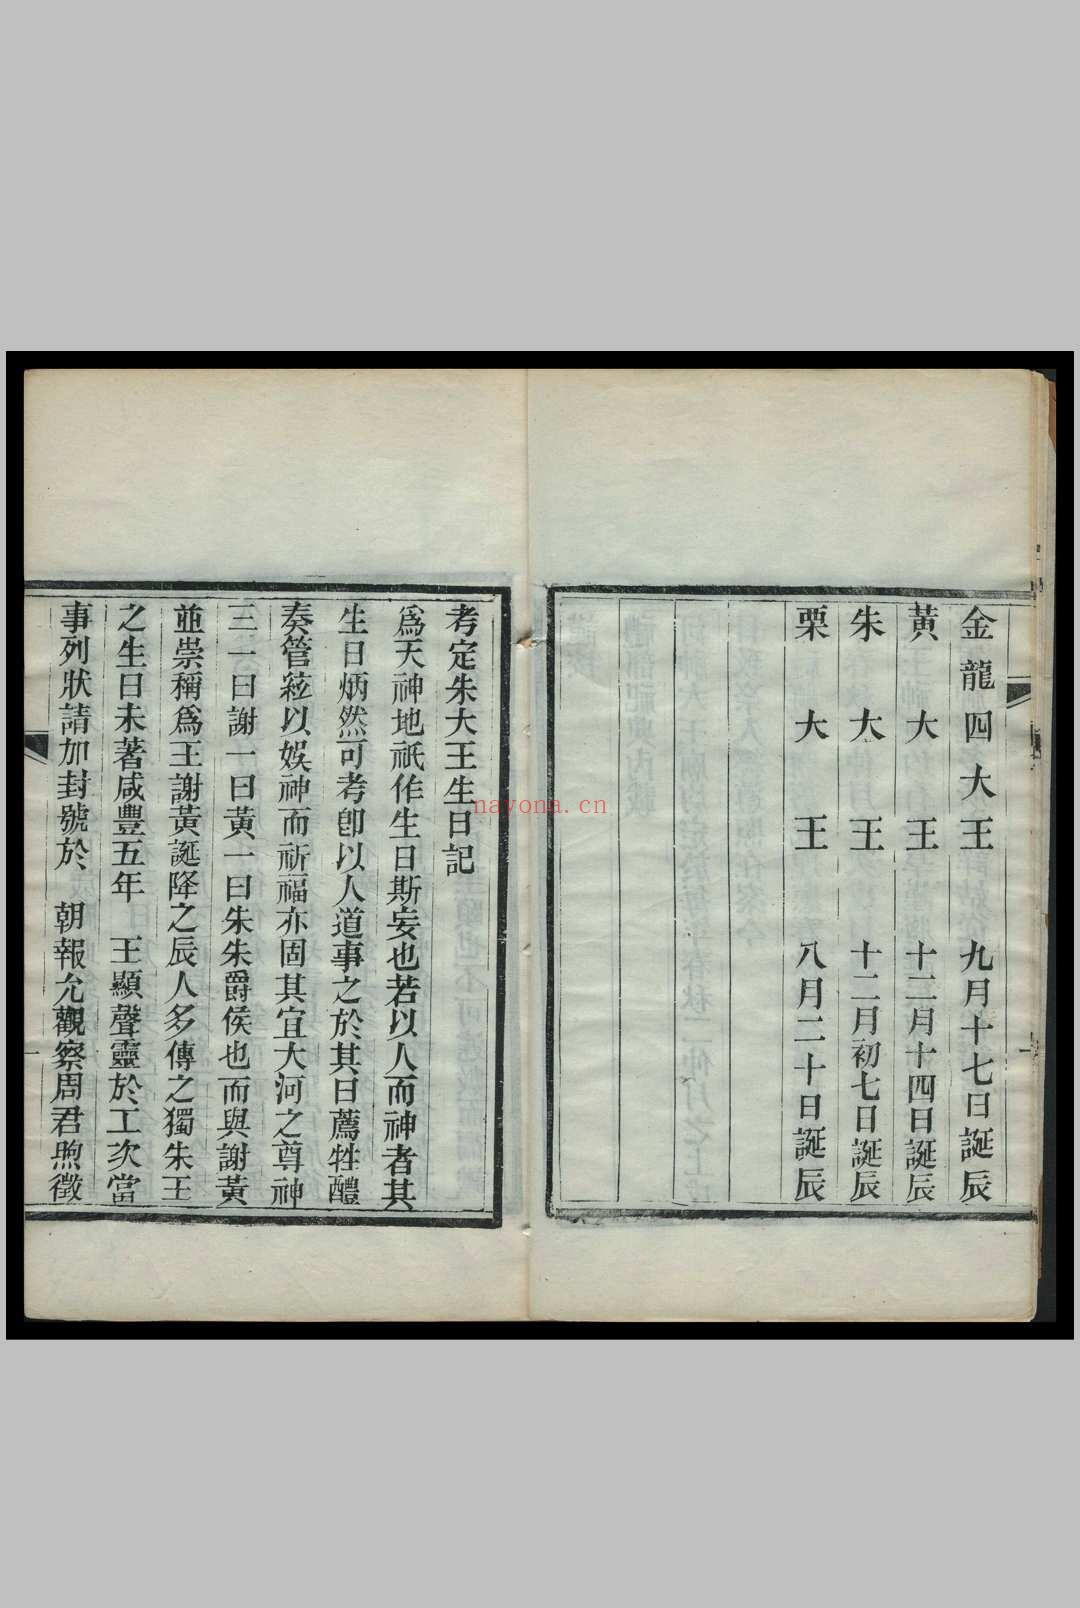 金龍四大王　九月十七日誕辰
黃大王　十二月十四日誕辰
朱大王　十二月初七日誕辰
栗大王　八月二十日誕辰
考定朱大王生日記
爲天神地祇作生日斯妄也若以人而神者其
生日炳然可考卽以人道事之於其日薦牲醴
奏管絃以娛神而祈福亦固其宜大河之尊神
三一曰謝一曰黃一曰朱朱爵侯也而與謝黃
並崇稱爲王謝黃誕降之辰人多傳之獨朱王
之生日未著咸豐五年　王顯聲靈於工次當
事列狀請加封號於　朝報允觀察周君煦徵
nayona.cn